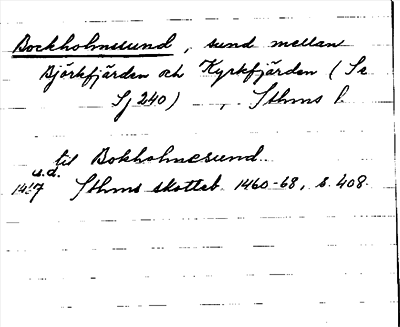 Bockholmssund, sund mellan
Björkfjärden och Kyrkfjärden (Se
Sj 240), Sthms l.
til Bokholmesund
u.d.
Sthms skotteb. 1460-68, s. 408.